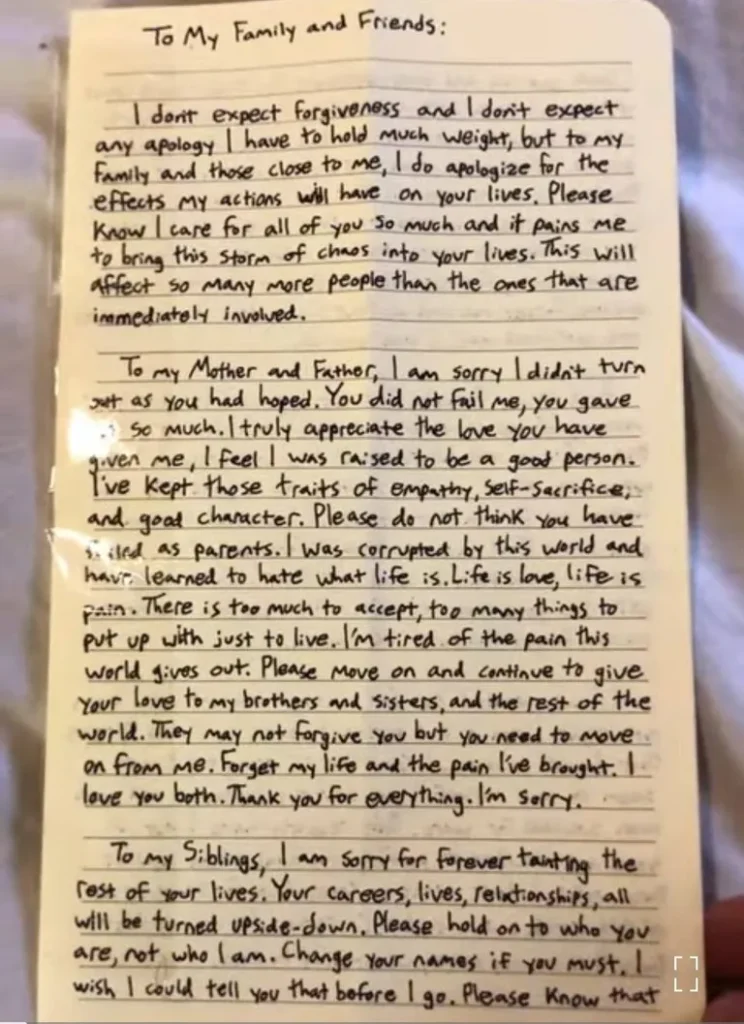 To My Family and Friends:
I don't expect forgiveness and I don't expect
any apology I have to hold much weight, but to my
family and those close to me, I do apologize for the
effects my actions will have on your lives. Please
know I care for all of you so much and it pains me
to bring this storm of chaos into your lives. This will
affect so many more people than the ones that are
immediately involved.
To my Mother and Father, I am sorry I didn't turn
out as you had hoped. You did not fail me, you gave
so much. I truly appreciate the love you have
given me, I feel I was raised to be a good person.
I've kept those traits of empathy, self-sacrifice,
and good character. Please do not think you have
failed as parents. I was corrupted by this world and
have learned to hate what life is. Life is love, life is
pain. There is too much to accept, too many things to
put up with just to live. I'm tired of the pain this
world gives out. Please move on and continue to give
your love to my brothers and sisters, and the rest of the
world. They may not forgive you but you need to move
on from me. Forget my life and the pain I've brought. I
love you both. Thank you for everything. I'm sorry.
To my Siblings, I am sorry for forever tainting the
rest of your lives. Your careers, lives, relationships, all
will be turned upside-down. Please hold on to who you
are, not who I am. Change your names if you must. I
wish I could tell you that before I go. Please know that